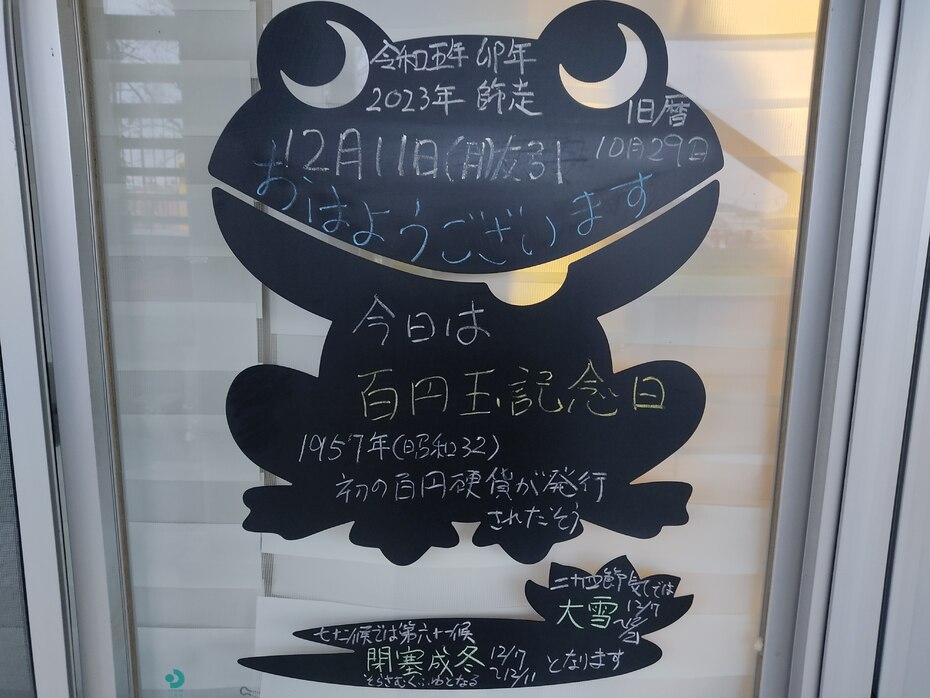 令和五年 卯年
2023年 師走
旧暦
10月29日
12月11日(月)友引
おはようございます
今日は
百円玉記念日
1957年(昭和32)
初の百円硬貨が発行
されたそう
二十四節気では
大雪 12/7
七十二候では第六十一候
閉塞成冬 12/7〜12/11 となります
そらさむくふゆとなる